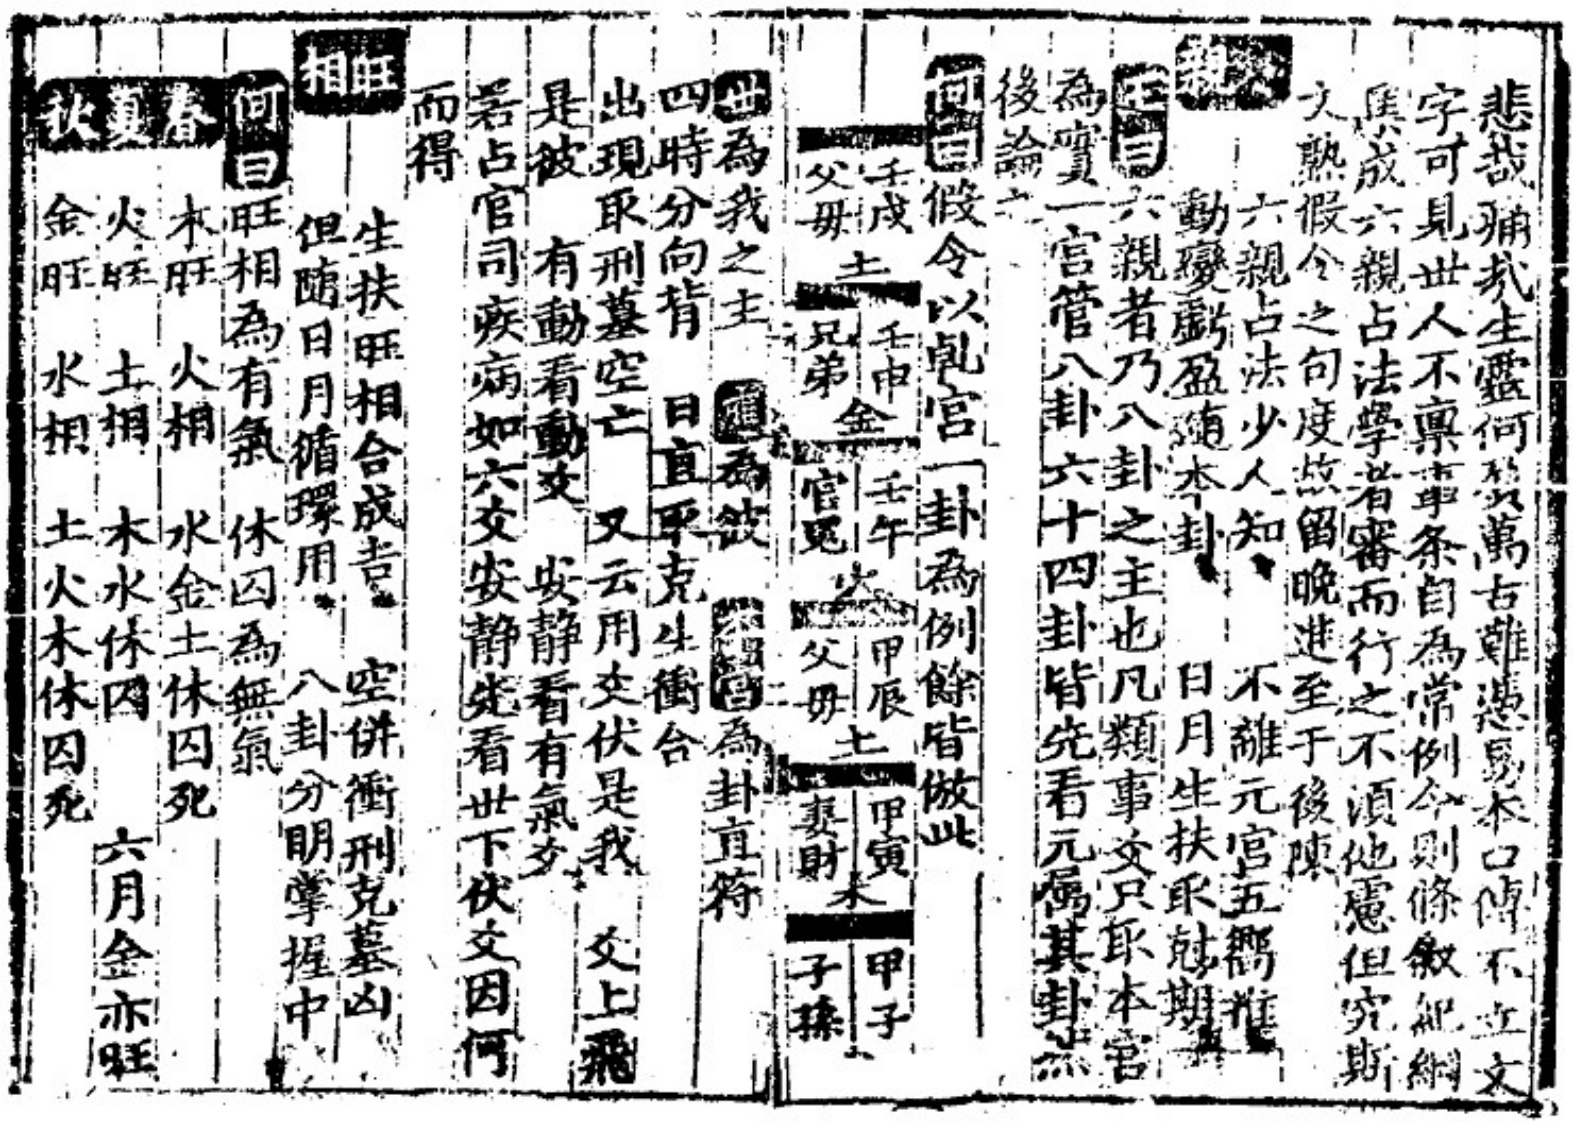 悲哉痛哉生靈何萬古難憑易本口傳不立文
字可見世人不稟事条自為常例今則條敘紀綱
集成六親占法學者審而行之不須他慮但究斯
文熟假令之句度故留晚進至于後陳
六親
六親占法少人知 不離元宮五鄉推
動變虧盈隨本卦 日月生扶取尅期
六親者乃八卦之主也凡類事爻只取本宮
為實一宮管八卦六十四卦皆先看元屬其卦然
後論之
何曰假令以乹宮一卦為例餘皆倣此
壬戌 父母 土
壬申 兄弟 金
壬午 官鬼 火
甲辰 父母 土
甲寅 妻財 木
甲子 子孫
世為我之主 應為彼 為卦直符
四時分向背 日直取克生衝合
出現取刑墓空亡 又云用爻伏是我 爻上飛
是彼 有動看動爻 安静看有氣爻
若占官司疾病如六爻安静先看世下伏爻因何
而得
旺相
生扶旺相合成吉 空併衝刑克墓凶
但随日月循環用 八卦分明掌握中
何曰旺相為有氣 休囚為無氣
春 木旺 火相 水金土休囚死
夏 火旺 土相 木水休囚 六月金亦旺
秋 金旺 水相 土火木休囚死